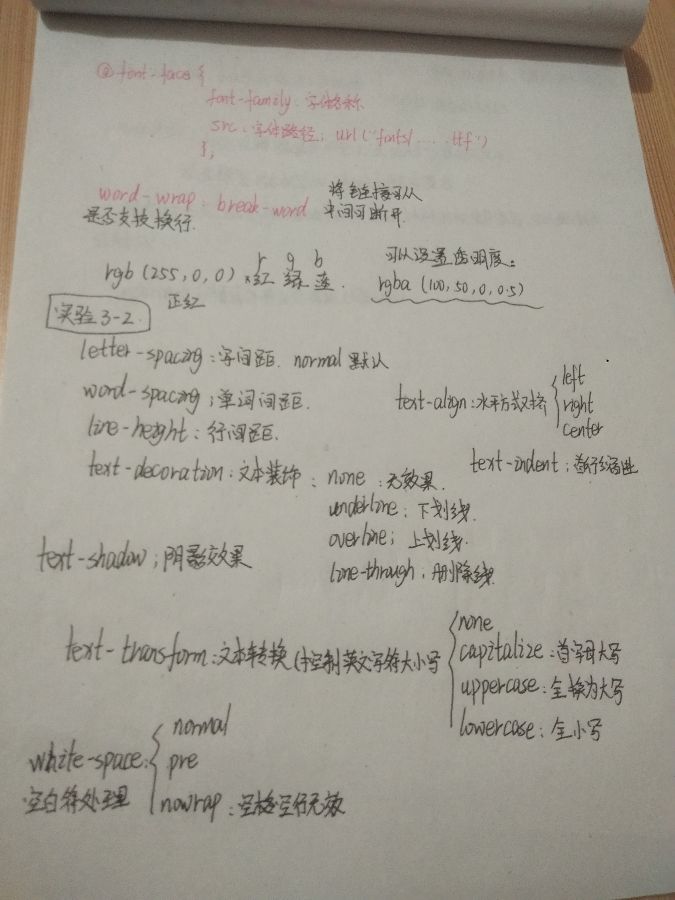 @font-face {
font-family: 字体名称
src: 字体路径; url("fonts/.....ttf")
};
word-wrap: break-word 将长链接可从
是否支持换行. 中间可断开.
r g b
rgb (255,0,0) 红 绿 蓝. 可以设置透明度:
正红 rgba (100,50,0,0.5)
实验3-2.
letter-spacing: 字间距. normal 默认
word-spacing; 单词间距. text-align: 水平方式对齐 { left
right
center
line-height: 行间距.
text-decoration: 文本装饰: none: 无效果. text-indent: 首行缩进
underline: 下划线.
overline; 上划线.
text-shadow; 阴影效果 line-through; 删除线.
text-transform: 文本转换 (控制英文字符大小写 { none
capitalize: 首字母大写
uppercase: 全换为大写
lowercase: 全小写
white-space: { normal
pre
空白符处理 nowrap: 空格空行无效